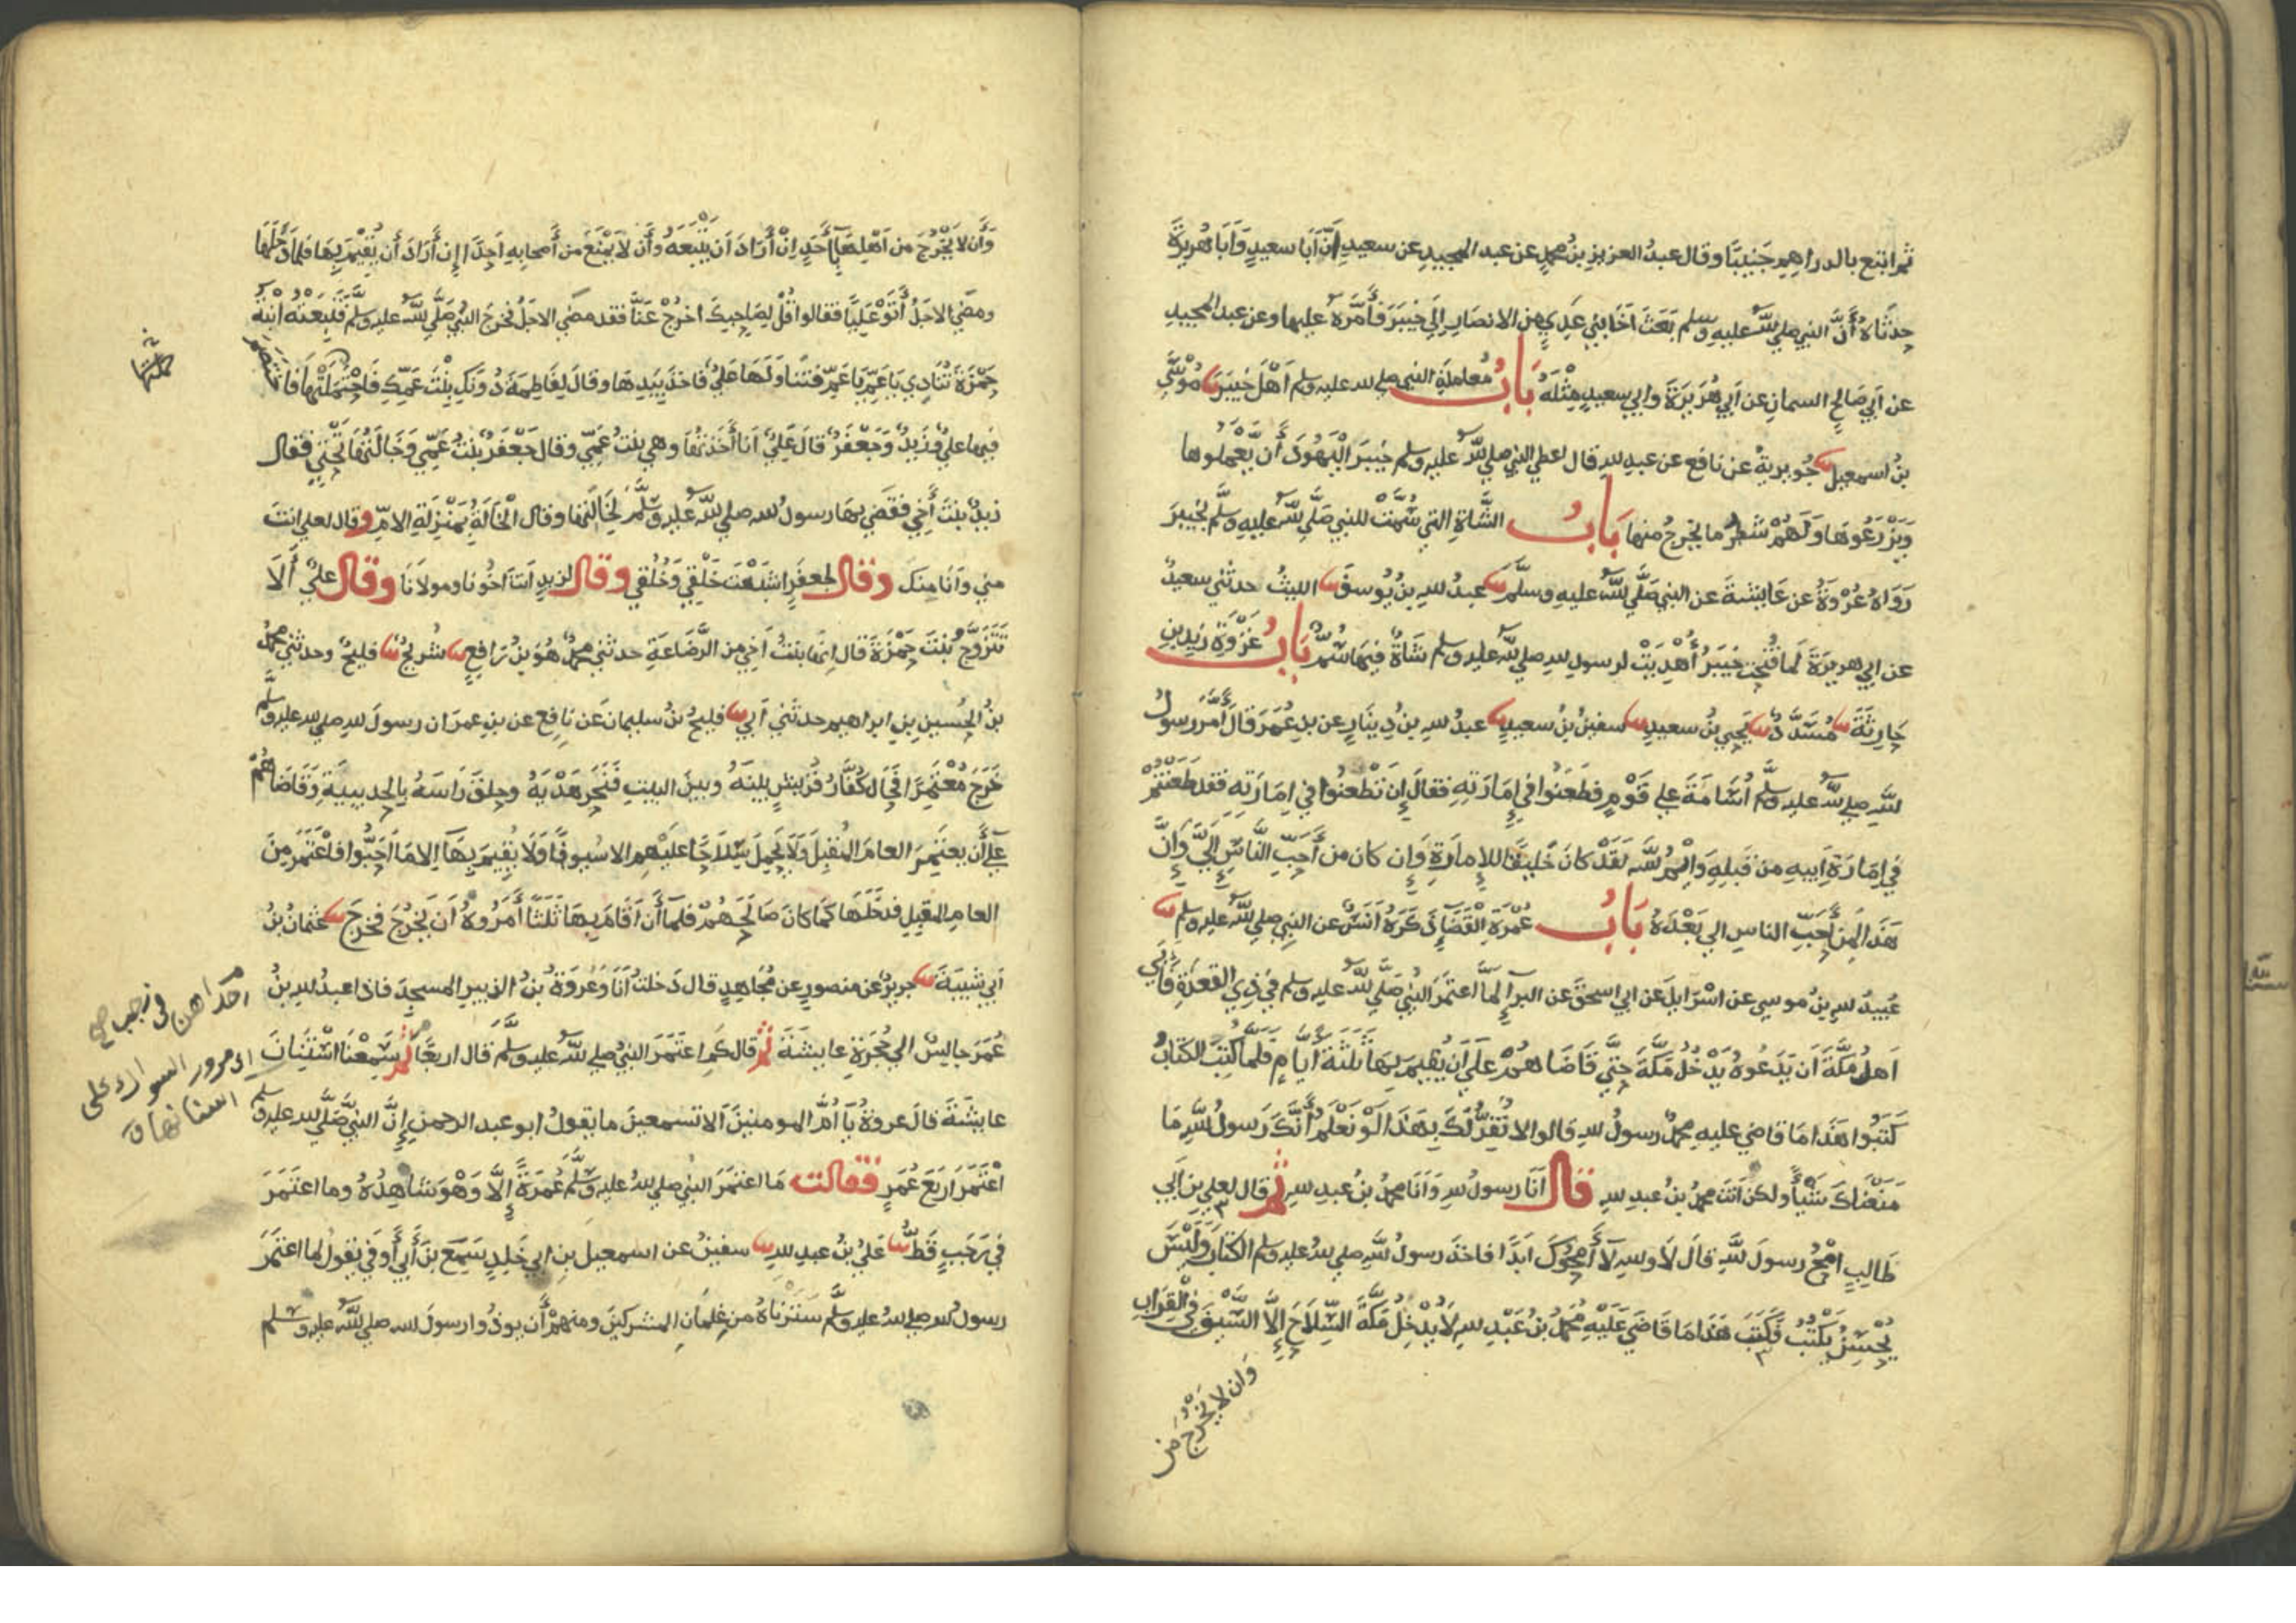 ثم ابتع بالدراهم جنيبا وقال عبد العزيز بن محمد عن عبد المجيد عن سعيد ان أبا سعيد وأبا هريرة
حدثاه أن النبي صلى الله عليه وسلم بعث أخا بني عدي من الانصار إلى خيبر فأمره عليها وعن عبد المجيد
عن أبي صالح السمان عن أبي هريرة وابي سعيد مثله باب معاملة النبي صلى الله عليه وسلم أهل خيبر ثنا موسى
بن اسمعيل ثنا جويرية عن نافع عن عبد الله قال اعطى النبي صلى الله عليه وسلم خيبر اليهود أن يعملوها
ويزرعوها ولهم شطر ما يخرج منها باب الشاة التي سمت للنبي صلى الله عليه وسلم بخيبر
رواه عروة عن عايشة عن النبي صلى الله عليه وسلم ثنا عبد الله بن يوسف ثنا الليث حدثني سعيد
عن ابي هريرة لما فتحت خيبر أهديت لرسول الله صلى الله عليه وسلم شاة فيها سم باب غزوة زيد بن
حارثة ثنا مسدد ثنا يحيى بن سعيد ثنا سفين بن سعيد ثنا عبد الله بن دينار عن بن عمر قال أمر رسول
الله صلى الله عليه وسلم أسامة على قوم فطعنوا في إمارته فقال إن تطعنوا في امارته فقد طعنتم
في إمارة أبيه من قبله وايم الله لقد كان خليقا للإمارة وإن كان من أحب الناس إلي وإن
هذا لمن أحب الناس الي بعده باب عمرة القضاء ذكره أنس عن النبي صلى الله عليه وسلم ثنا
عبيد الله بن موسى عن اسرايل عن ابي اسحق عن البراء لما اعتمر النبي صلى الله عليه وسلم في ذي القعدة فأبى
أهل مكة أن يدعوه يدخل مكة حتى قاضاهم على أن يقيم بها ثلثة أيام فلما كتب الكتاب
كتبوا هذا ما قاضى عليه محمد رسول الله قالوا لا نقر لك بهذا لو نعلم أنك رسول الله ما
منعناك شيأ ولكن انت محمد بن عبد الله قال أنا رسول الله وأنا محمد بن عبد الله ثم قال لعلي بن أبي
طالب امح رسول الله قال لا والله لا أمحوك أبدا فاخذ رسول الله صلى الله عليه وسلم الكتاب وليس
يحسن يكتب فكتب هذا ما قاضى عليه محمد بن عبد الله لا يدخل مكة السلاح إلا السيف في القراب
وان لا يخرج من
وأن لا يخرج من أهلها بأحد إن أراد أن يتبعه وأن لا يمنع من أصحابه احدا إن أراد أن يقيم بها فلما دخلها
ومضى الاجل أتوا عليا فقالوا قل لصاحبك اخرج عنا فقد مضى الاجل فخرج النبي صلى الله عليه وسلم فتبعته ابنة
حمزة تنادي يا عم يا عم فتناولها علي فاخذ بيدها وقال لفاطمة دونك بنت عمك فاحتملتها فاختصم
فيها علي وزيد وجعفر قال علي انا أخذتها وهي بنت عمي وقال جعفر بنت عمي وخالتها تحتي فقال
زيد بنت أخي فقضى بها رسول الله صلى الله عليه وسلم لخالتها وقال الخالة بمنزلة الام وقال لعلي انت
مني وأنا منك وقال لجعفر اشبهت خلقي وخلقي وقال لزيد انت اخونا ومولانا وقال علي ألا
تتزوج بنت حمزة قال انها بنت أخي من الرضاعة حدثني محمد هو بن رافع ثنا سريج ثنا فليح وحدثني محمد
بن الحسين بن ابراهيم حدثني أبي ثنا فليح بن سليمان عن نافع عن بن عمر ان رسول الله صلى الله عليه وسلم
خرج معتمرا فحال كفار قريش بينه وبين البيت فنحر هديه وحلق راسه بالحديبية وقاضاهم
على أن يعتمر العام المقبل ولا يحمل سلاحا عليهم الا سيوفا ولا يقيم بها الا ما احبوا فاعتمر من
العام المقبل فدخلها كما كان صالحهم فلما أن أقام بها ثلثا أمروه أن يخرج فخرج ثنا عثمان بن
أبي شيبة ثنا جرير عن منصور عن مجاهد قال دخلت أنا وعروة بن الزبير المسجد فاذا عبد الله بن
عمر جالس الى حجرة عايشة ثم قال كم اعتمر النبي صلى الله عليه وسلم قال اربعا ثم سمعنا استنان
عايشة قال عروة يا أم المومنين ألا تسمعين ما يقول ابو عبد الرحمن إن النبي صلى الله عليه وسلم
اعتمر اربع عمر فقالت ما اعتمر النبي صلى الله عليه وسلم عمرة إلا وهو شاهده وما اعتمر
في رجب قط ثنا علي بن عبد الله ثنا سفين عن اسمعيل بن ابي خلد سمع بن أبي أوفى يقول لما اعتمر
رسول الله صلى الله عليه وسلم سترناه من غلمان المشركين ومنهم أن يوذوا رسول الله صلى الله عليه وسلم
احداهن في رجب صح
اي مرور السواك على
اسنانها ق